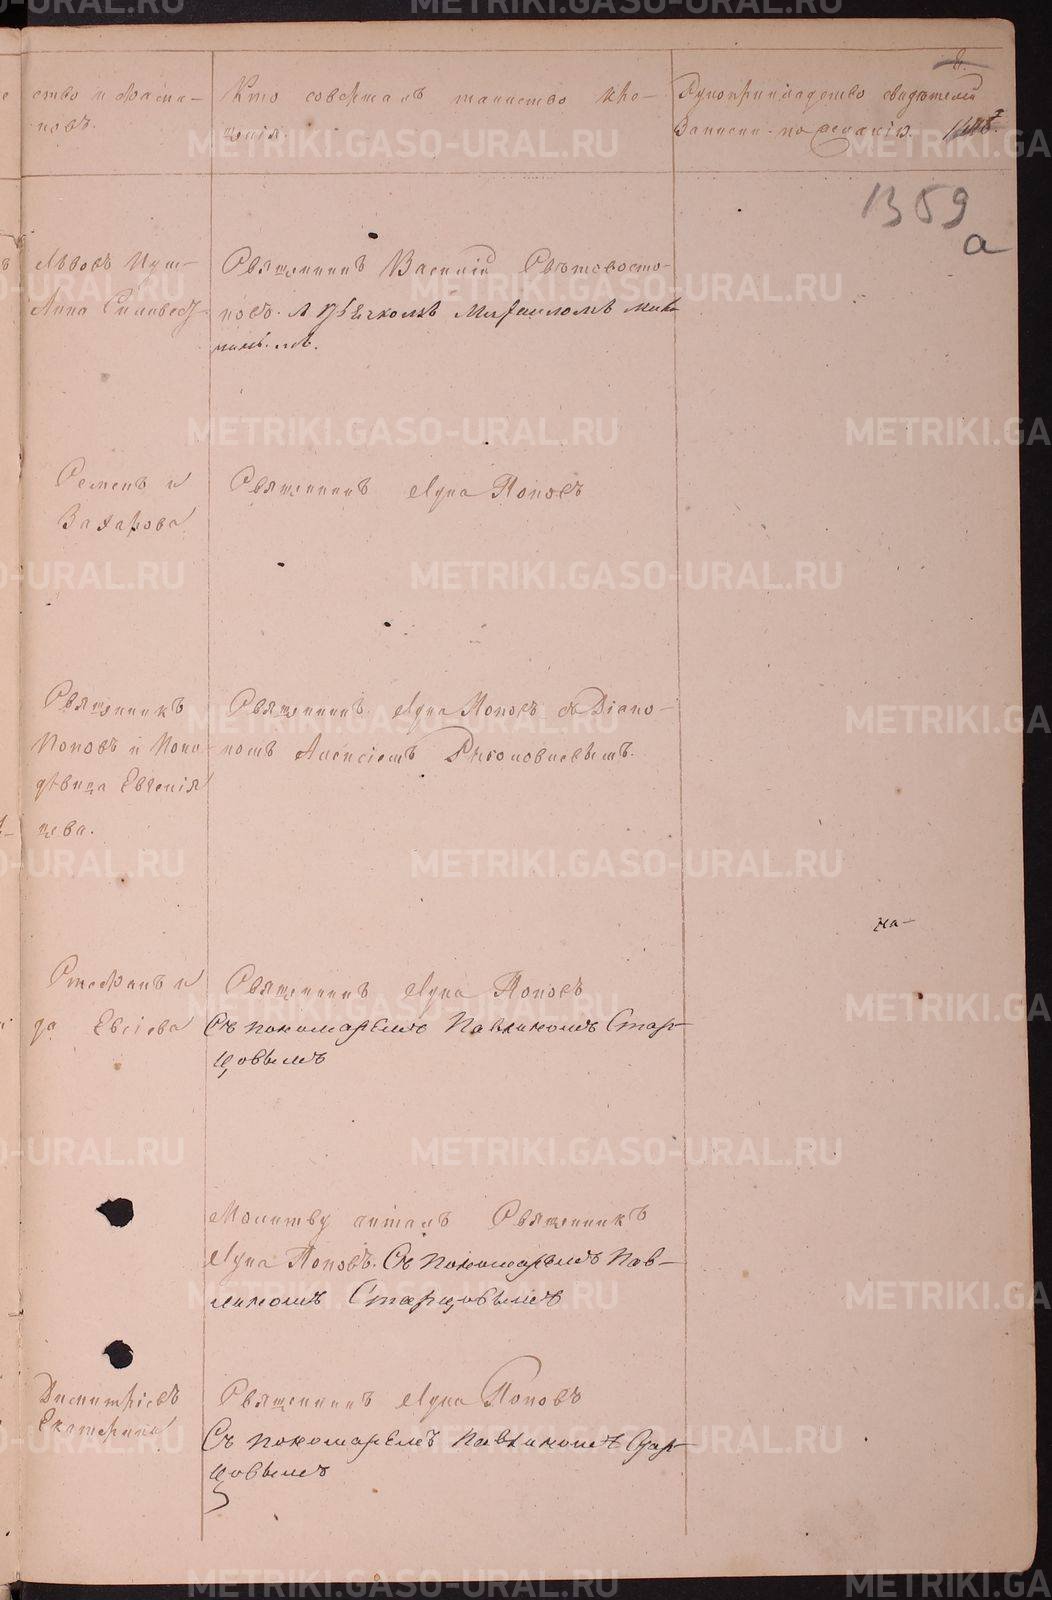 8.
ство и фами-
новъ.
Кто совершалъ таинство кре-
щенія.
Рукоприкладство свидѣтелей
Записи по желанію.
1359
а
Львовъ
Анна
Священникъ Василій Свѣтовосто-
ковъ.
Семенъ и
Захарова
Священникъ Лука Поповъ
Священникъ
Поповъ и
дѣвица Евгенія
цева.
Священникъ Лука Поповъ съ Діако-
номъ Алексіемъ
на-
Стефанъ и
да Евсіева
Священникъ Лука Поповъ
Съ пономаремъ Павлиномъ Стар-
цовымъ
Молитву читалъ Священникъ
Лука Поповъ. Съ пономаремъ Пав-
линомъ Старцовымъ
Димитріевъ
Екатерина
Священникъ Лука Поповъ
Съ пономаремъ Павлиномъ Стар-
цовымъ
METRIKI.GASO-URAL.RU